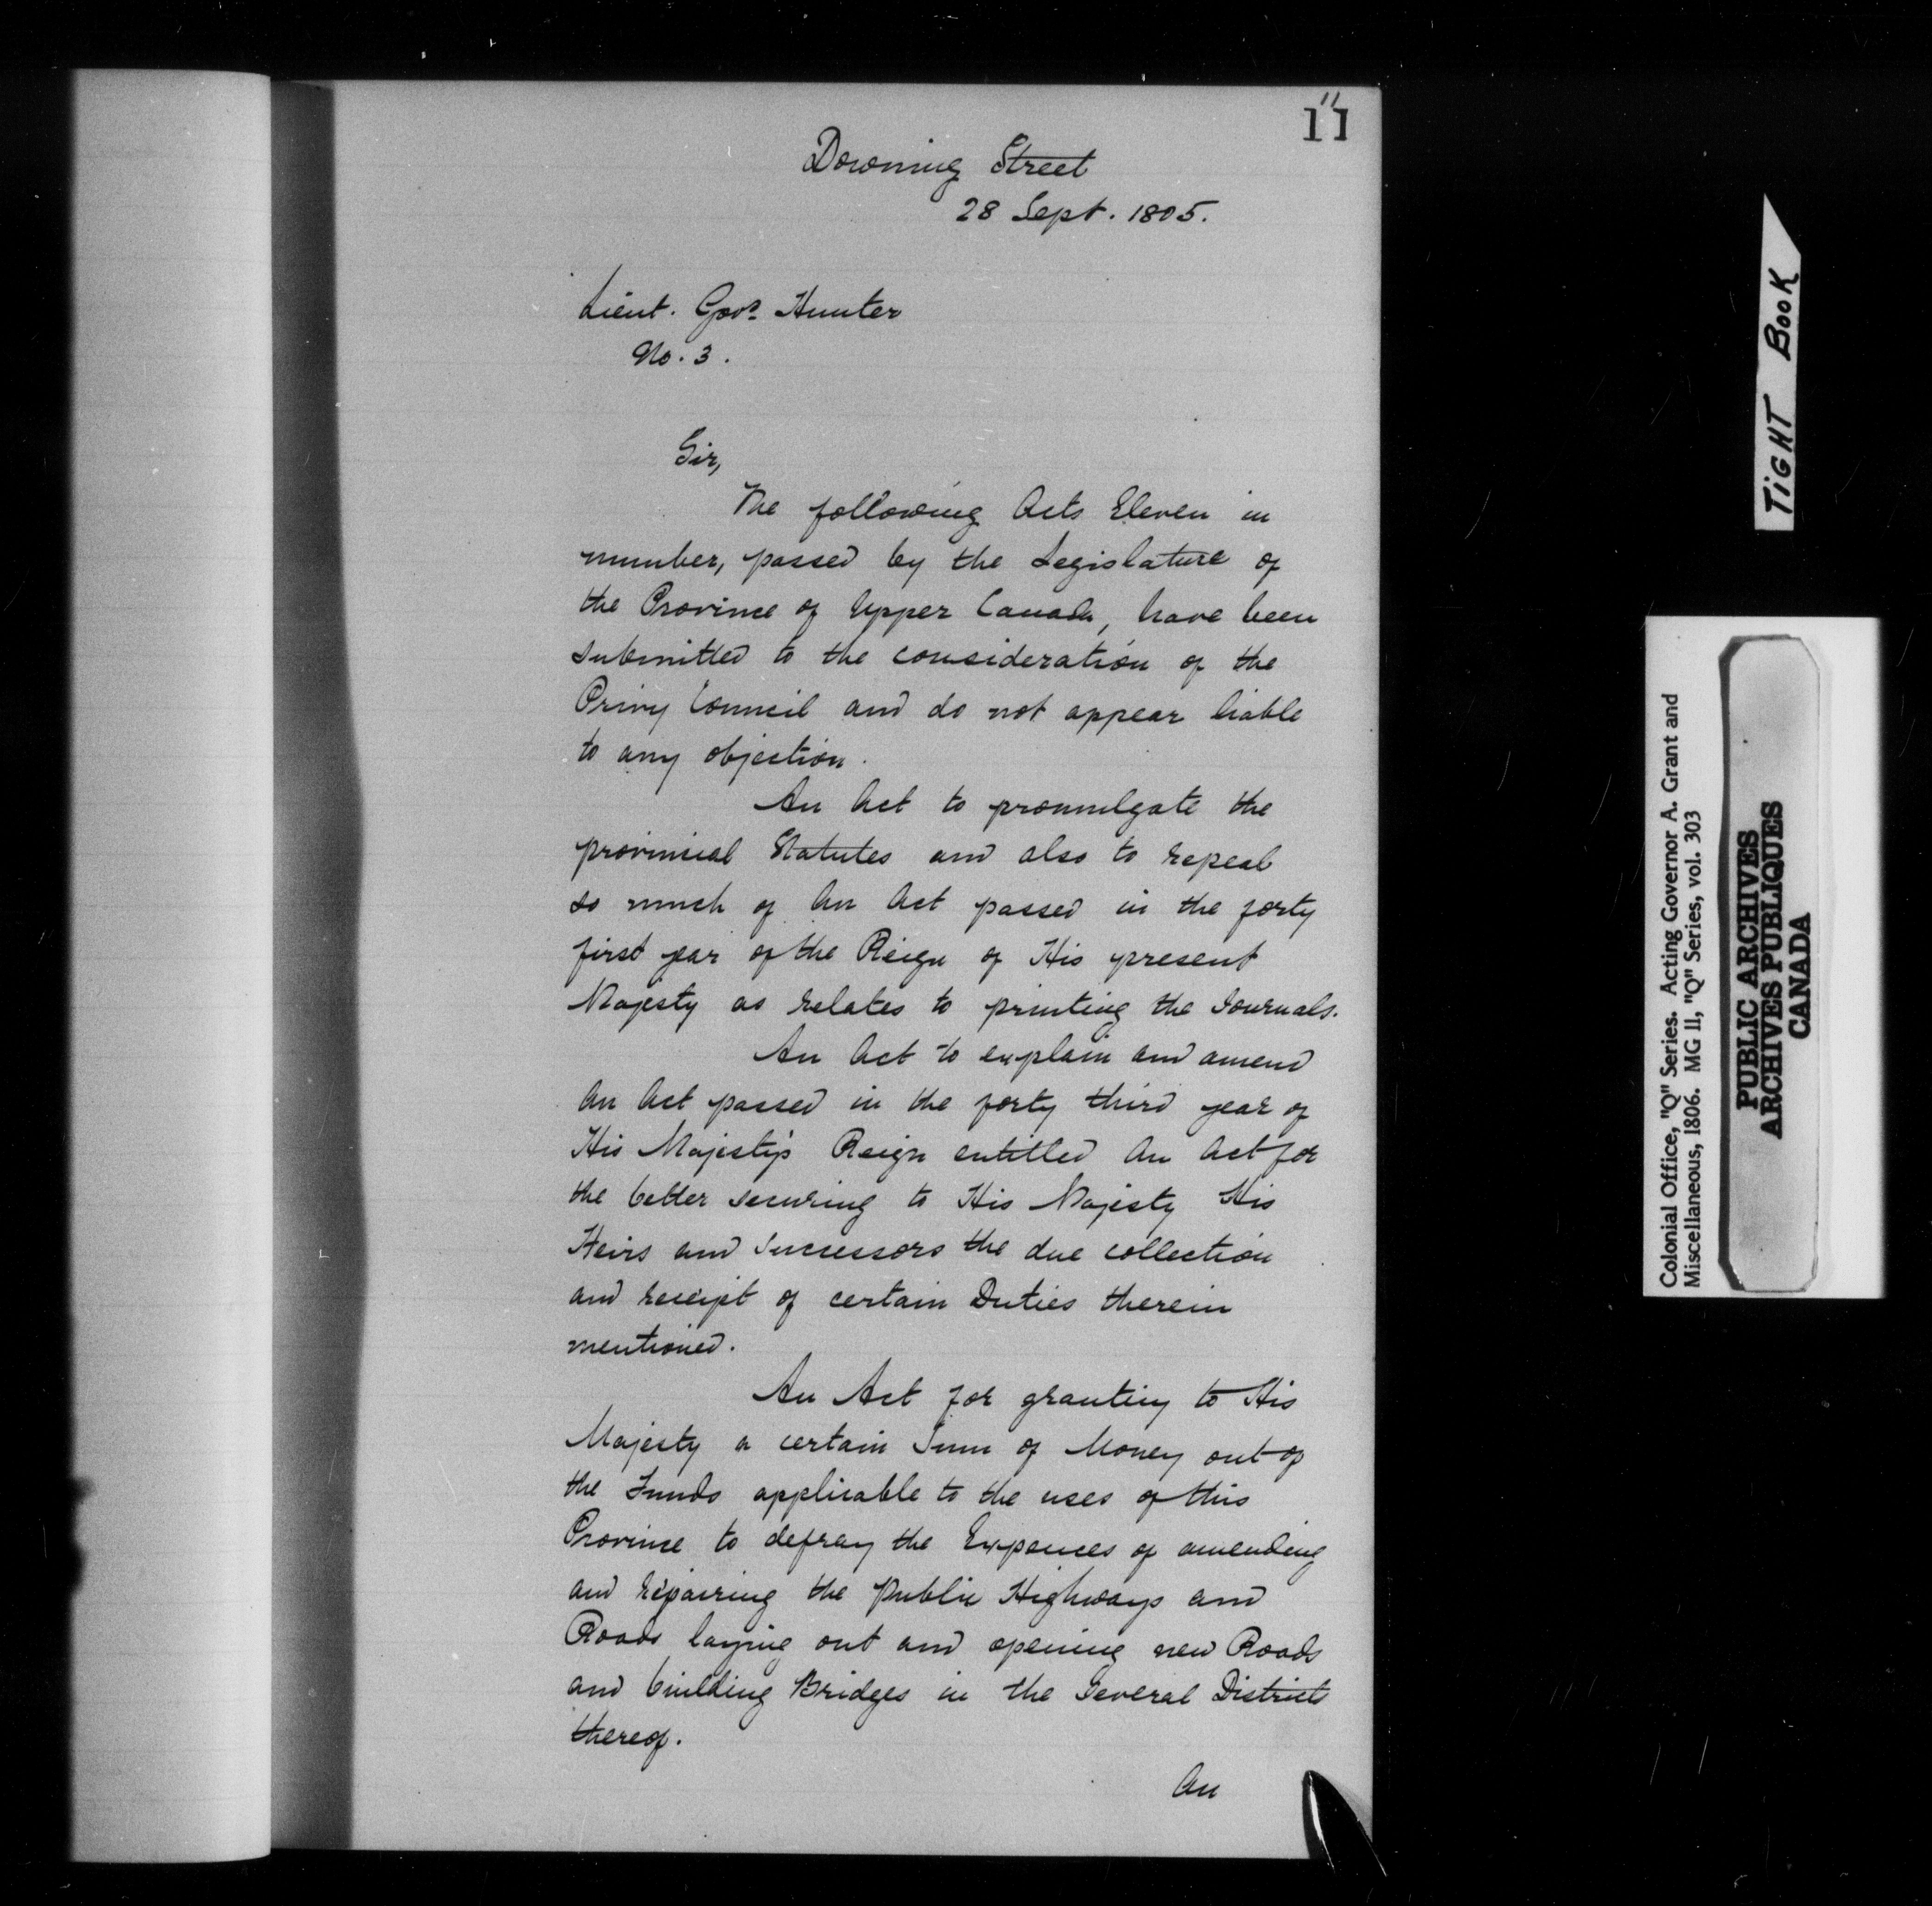 11
11
Downing Street
28 Sept. 1805.
Lieut. Govr. Hunter
No. 3.
Sir,
The following Acts Eleven in
number, passed by the Legislature of
the Province of Upper Canada, have been
submitted to the consideration of the
Privy Council and do not appear liable
to any objection.
An Act to promulgate the
provincial Statutes and also to repeal
so much of An Act passed in the forty
first year of the Reign of His present
Majesty as relates to printing the Journals.
An Act to explain and amend
An Act passed in the forty third year of
His Majesty's Reign entitled An Act for
the better securing to His Majesty His
Heirs and Successors the due collection
and receipt of certain Duties therein
mentioned.
An Act for granting to His
Majesty a certain Sum of Money out of
the Funds applicable to the uses of this
Province to defray the Expences of amending
and repairing the Public Highways and
Roads laying out and opening new Roads
and building Bridges in the Several Districts
thereof.
An
TIGHT BOOK
Colonial Office, "Q" Series. Acting Governor A. Grant and
Miscellaneous, 1806. MG 11, "Q" Series, vol. 303
PUBLIC ARCHIVES
ARCHIVES PUBLIQUES
CANADA